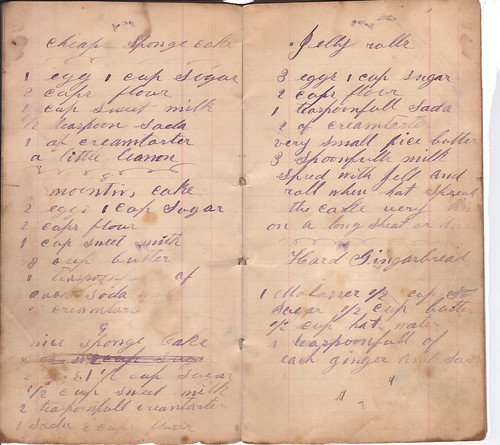 cheap sponge cake
1 egg 1 cup sugar
2 cups flour
1 cup sweet milk
1/2 teaspoon soda
1 of creamtarter
a little leamon
mountin cake
2 eggs 1 cup sugar
2 cups flour
1 cup sweet milk
cup butter
1 teaspoon of
each soda
creamtarter
sponge cake
2 1 1/2 cup sugar
1/2 cup sweet milk
2 teaspoonfull creamtarter
1 soda 2 cups flour
Jelly rolls
3 eggs 1 cup sugar
2 cups flour
1 teaspoonfull soda
2 of creamtarter
very small pice butter
3 spoonfulls milk
spred with jell and
roll when hot spread
the cake very
on a long sheat or
Hard Gingarbread
1 Molasses 1/2 cup
sugar 1/2 cup butter
1/2 cup hot water
1 teaspoonfull of
each ginger and soda